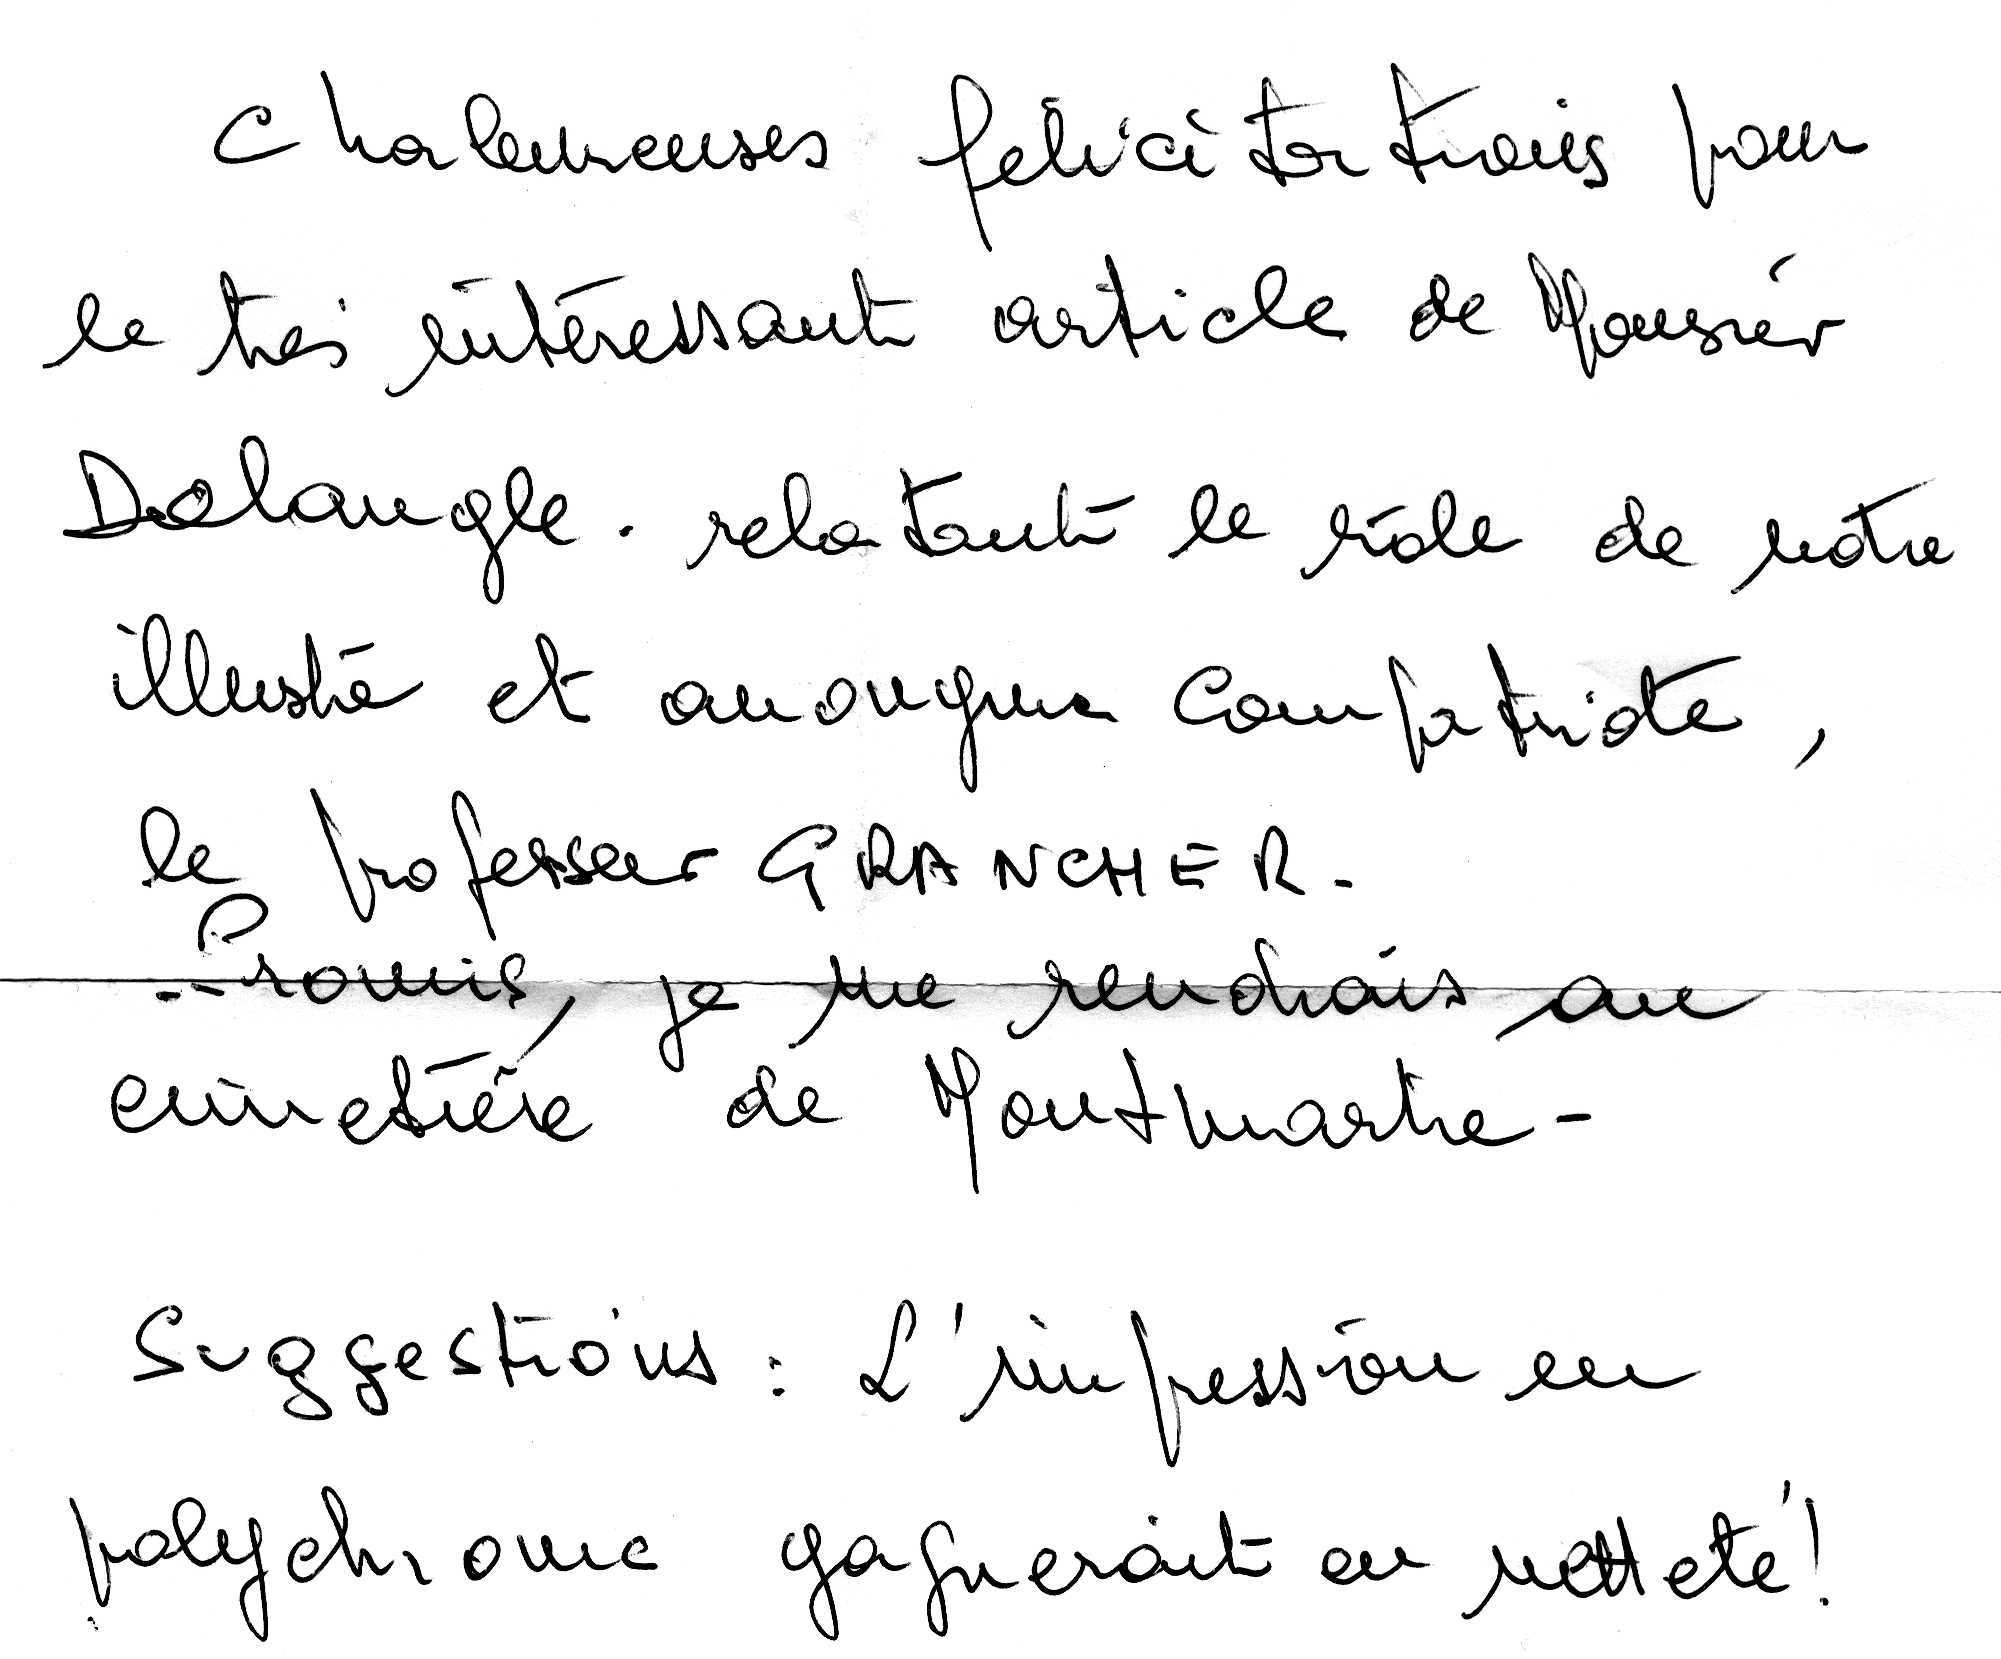 Chaleureuses félicitations pour
le très intéressant article de Monsiér
Delangle. relatant le rôle de notre
illustre et anonyme Compatriote,
le professeur GRANCHER.
-- Promis, je me rendrais au
cimetière de Montmartre -
Suggestions : L'impression en
polychrome gagnerait en netteté !